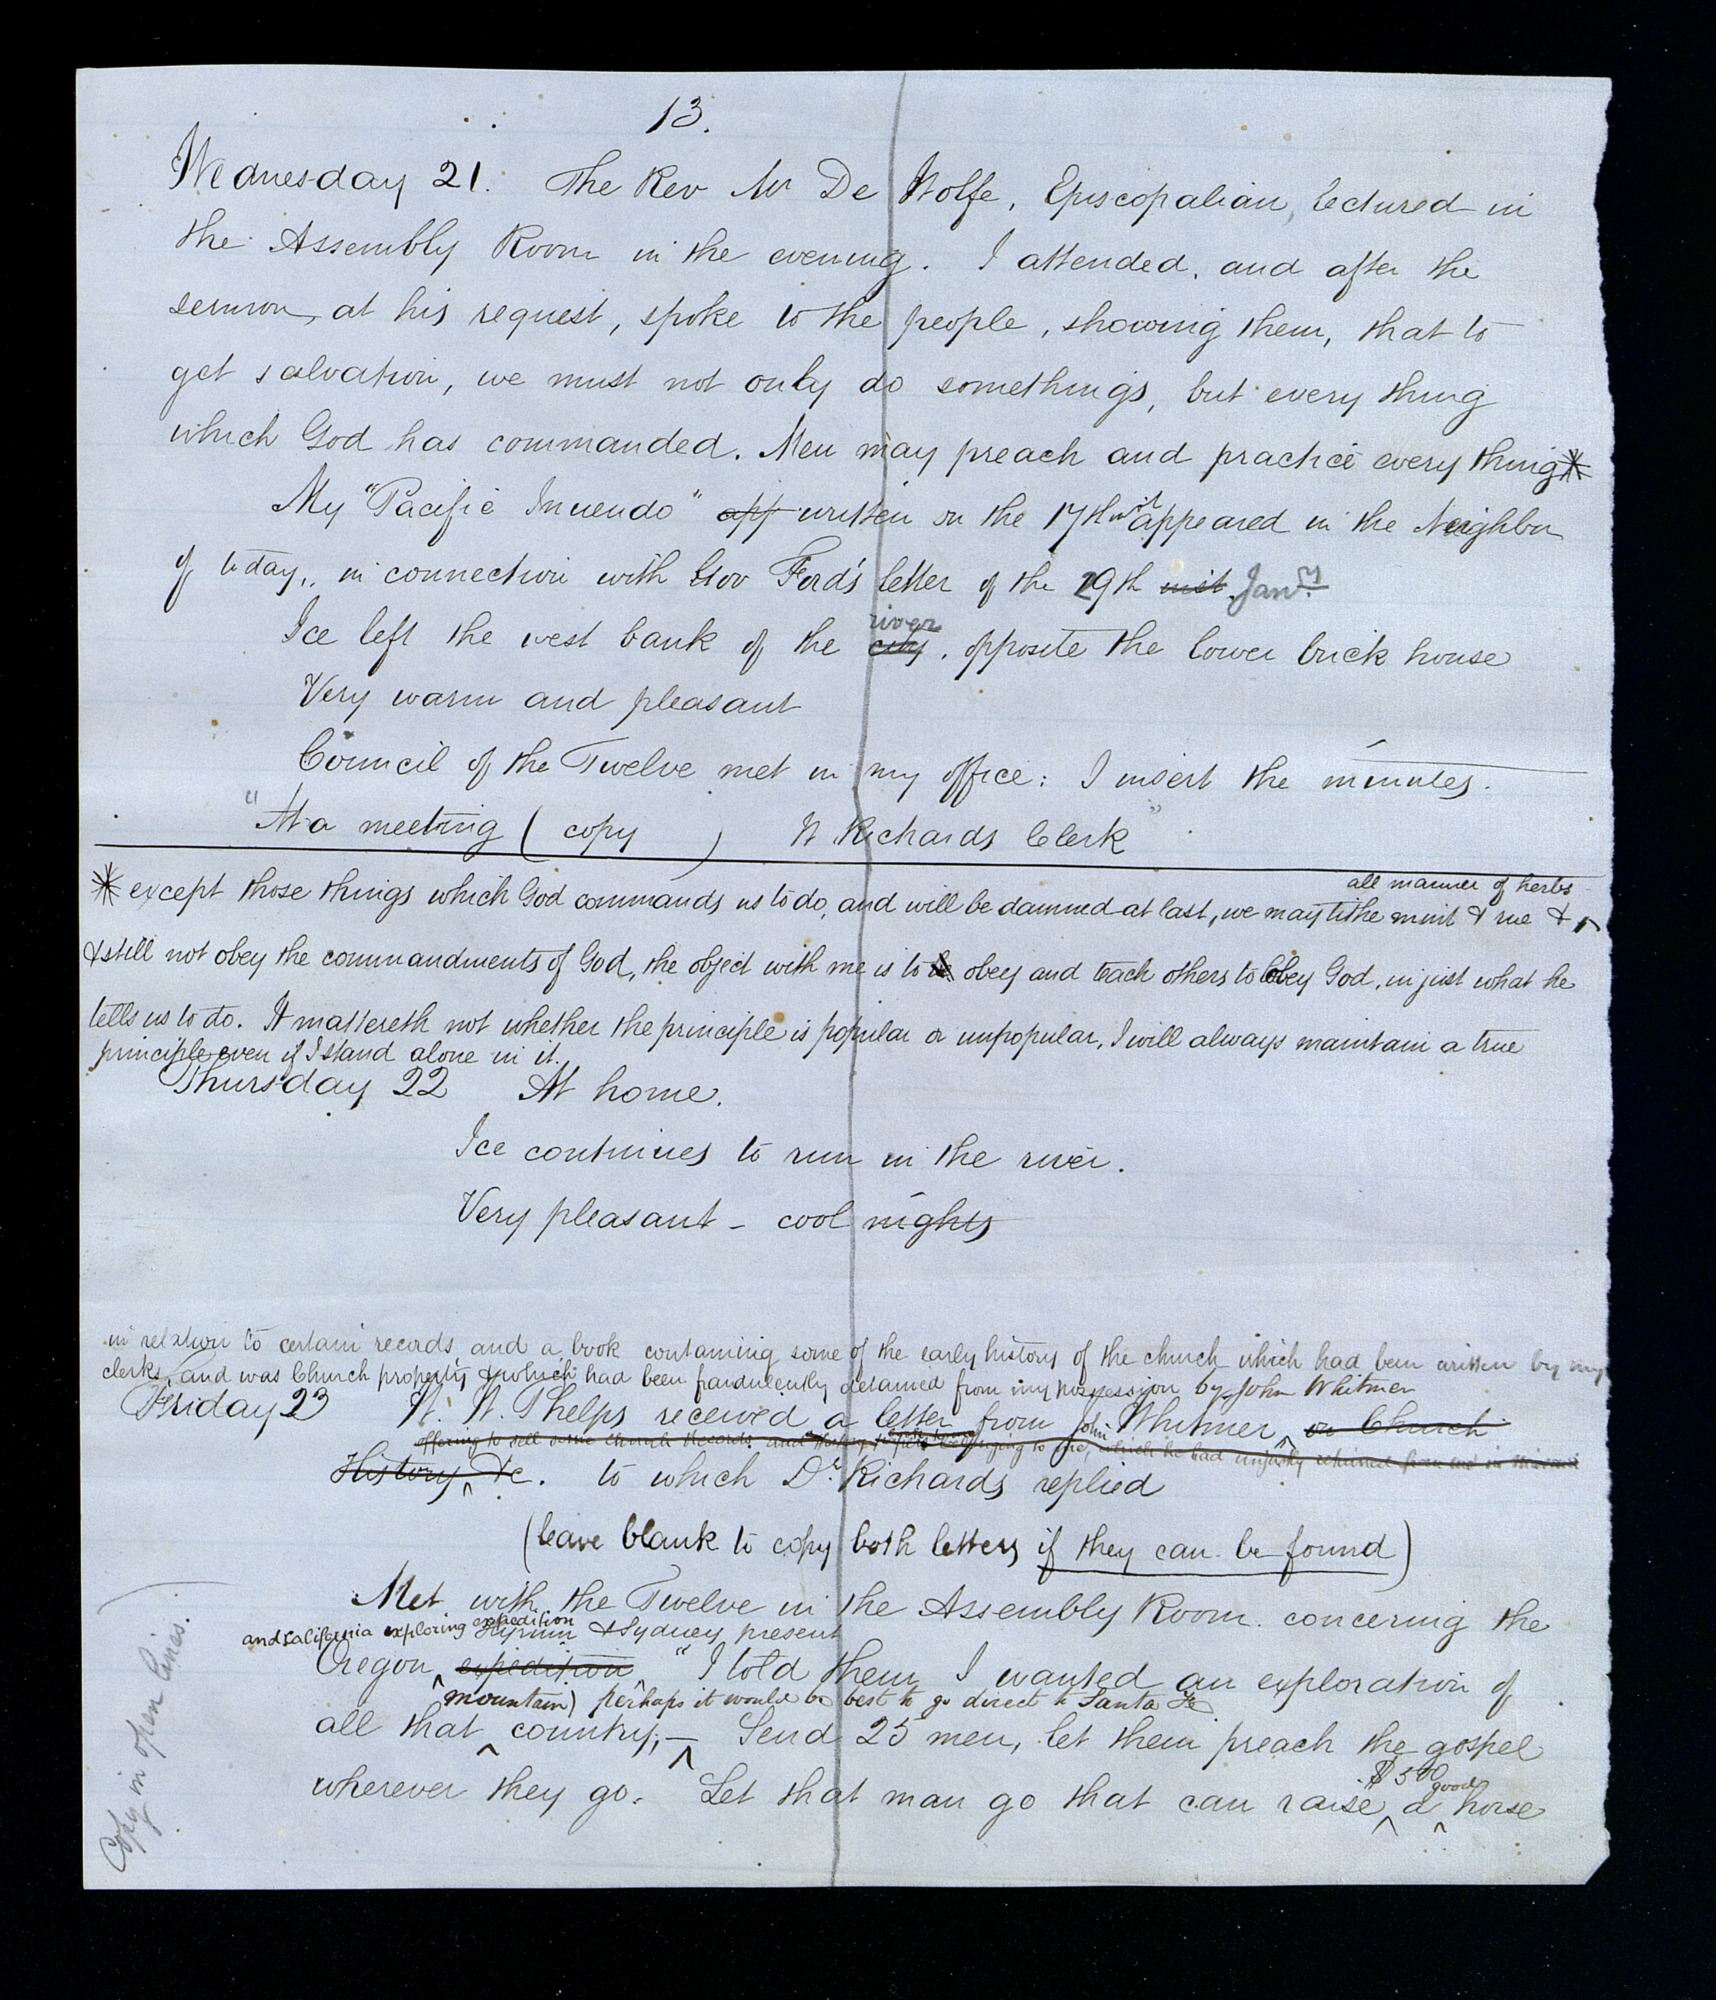 13.
Wednesday 21. The Rev Mr De Wolfe, Episcopalian, lectured in
the Assembly Room in the evening. I attended, and after the
sermon, at his request, spoke to the people, showing them, that to
get salvation, we must not only do somethings, but every thing
which God has commanded. Men may preach and practice every thing*
My "Pacific Inuendo" app written on the 17th inst appeared in the Neighbor
of today,, in connection with Gov Ford's letter of the 29th inst. Jany.
river
Ice left the west bank of the city, opposite the lower brick house
Very warm and pleasant
Council of the Twelve met in my office: I insert the minutes.
"At a meeting ( copy ) W Richards Clerk"
all manner of herbs
* except those things which God commands us to do, and will be damned at last, we may tithe mint & rue & ^
& still not obey the commandments of God, the object with me is to obey and teach others to obey God, in just what he
tells us to do. It mattereth not whether the principle is popular or unpopular, I will always maintain a true
principle even if I stand alone in it.
Thursday 22 At home.
Ice continues to run in the river.
Very pleasant – cool nights
in relation to certain records and a book containing some of the early history of the church which had been written by my
clerks, and was Church property & which had been fraudulently detained from my possession by John Whitmer
Friday 23 W. W. Phelps received a letter from John Whitmer ^ on Church
offering to sell some church records and history papers belonging to me, which he had unjustly retained from me in Missouri
History ^ &c. to which Dr Richards replied
(leave blank to copy both letters if they can be found)
Met with the Twelve in the Assembly Room concerning the
and California exploring expedition Hyrum & Sydney present
Oregon ^ expedition ^ "I told them I wanted an exploration of
mountain) perhaps it would be best to go direct to Santa Fe
all that ^ country; – ^ Send 25 men, let them preach the gospel
$500 good
wherever they go. Let that man go that can raise ^ a ^ horse
Copy in open lines.